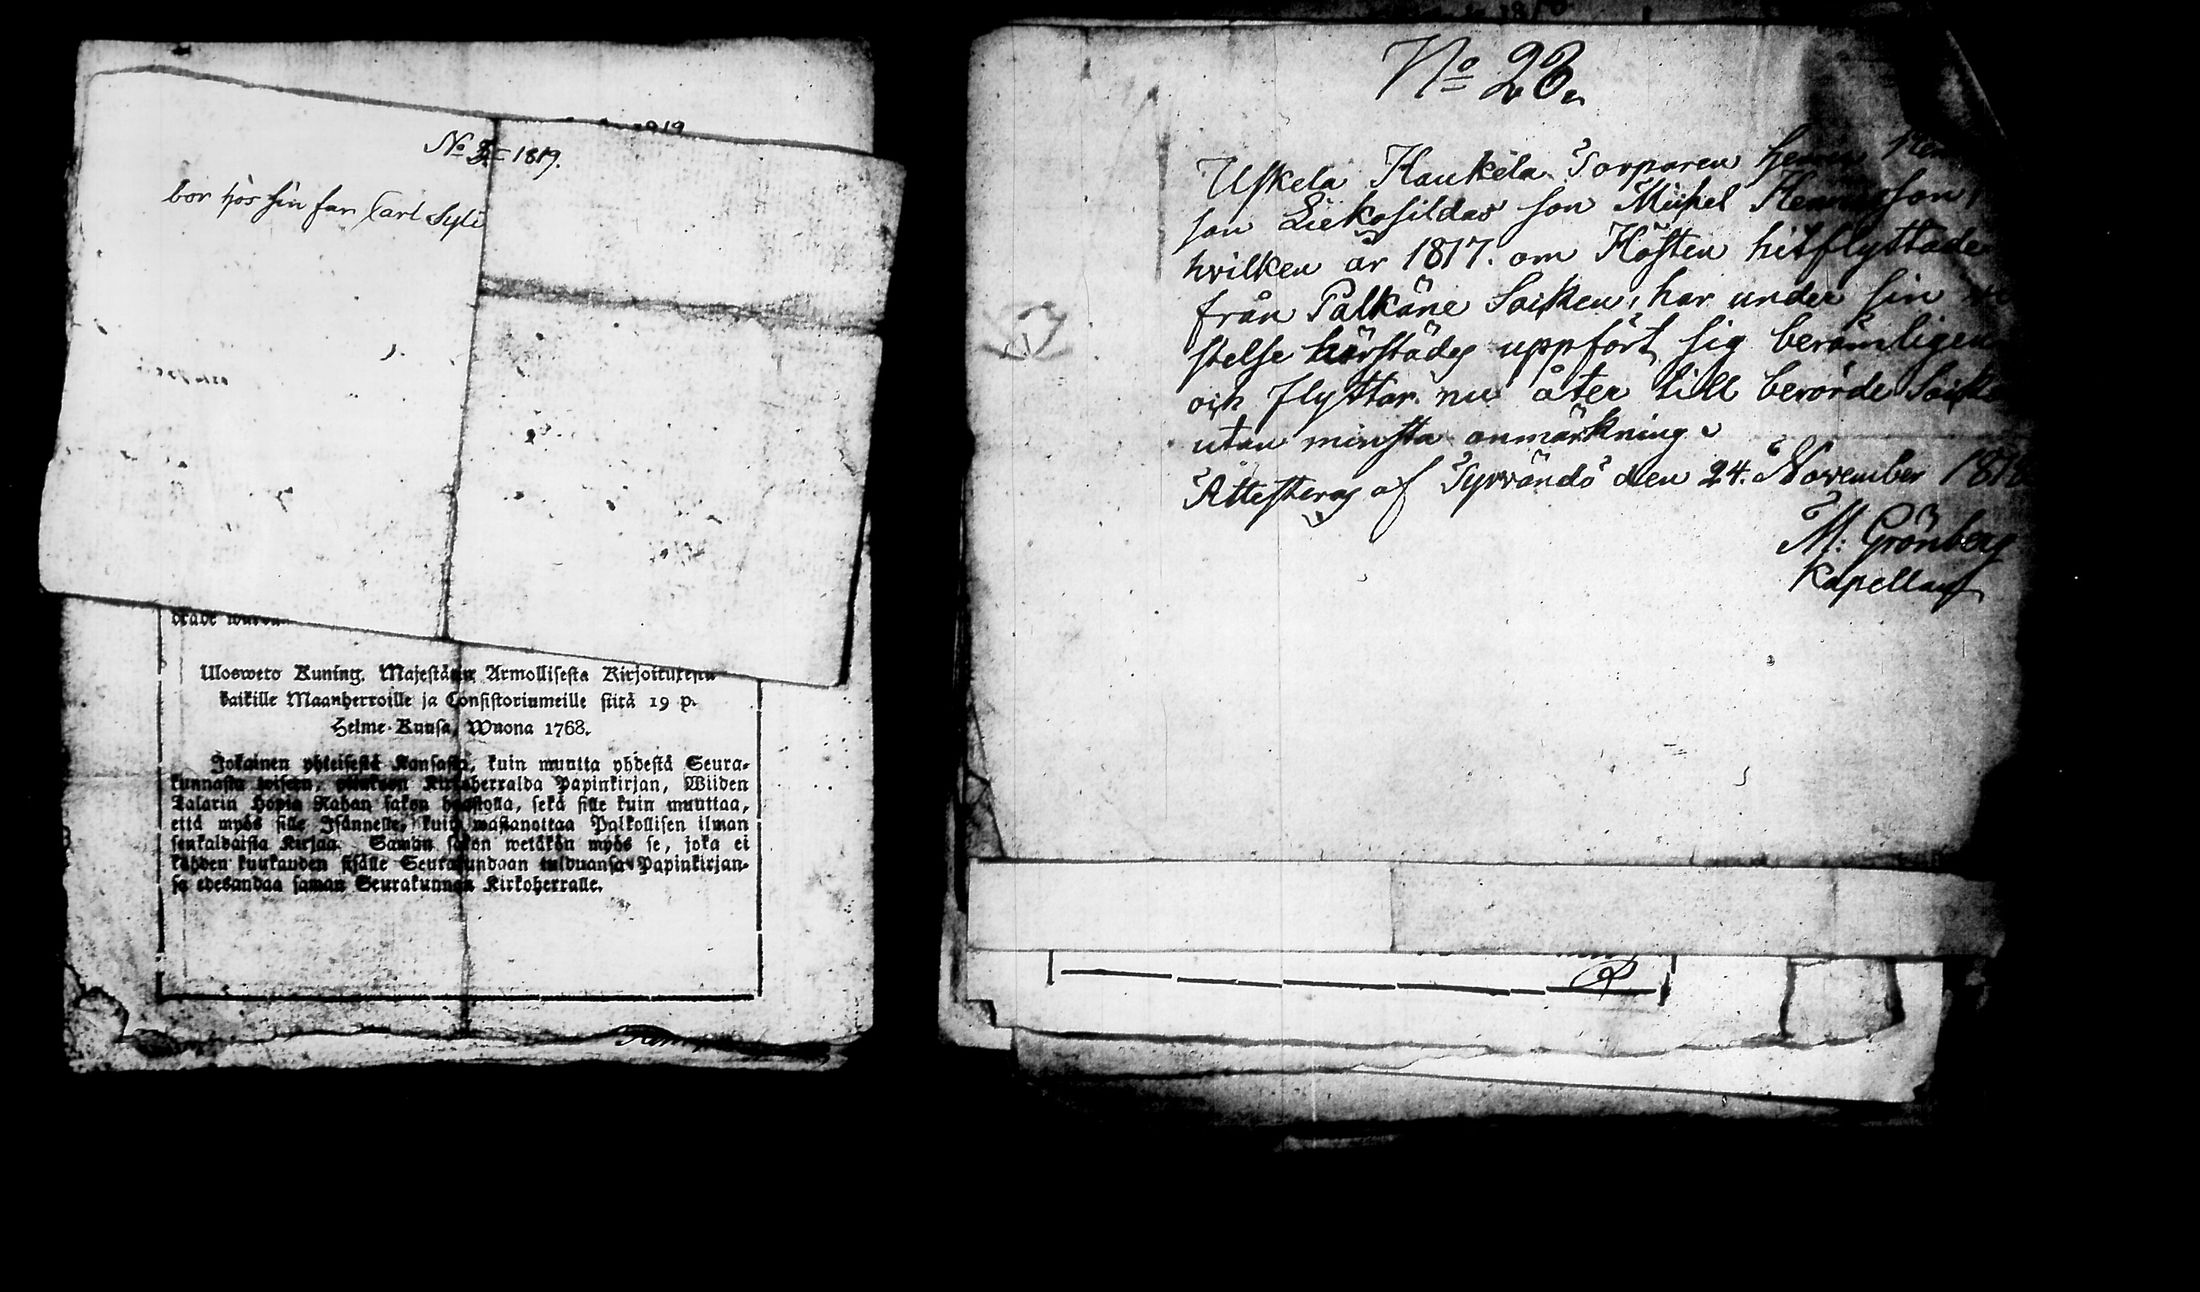 No 3 = 1819.
bor hos sin far Carl Syli
Ulosweto Kuning. Majestätin Armollisesta Kirjoituxesta
kaikille Maanherroille ja Consistoriumeille stitä 19 p.
Helme-Kuusa, Wuona 1768.
Jokainen yhteisestä Kansasta, kuin muutta yhdestä Seura-
kunnasta toiseen, Kirkoherralda Papinkirjan, Wiiden
Talarin Hopia Rahan sakon haastolla, sekä sille kuin muuttaa,
että myös sille Isännelle, kuin wastanottaa Palkollisen ilman
senkaldaista Kirjaa. Saman sakon wetäkön myös se, joka ei
kahden kuukauden sisälle Seurakundaan tulduansa Papinkirjan-
sa edesandaa saman Seurakunnan Kirkoherralle.
No 23.
Uskela Haukela Torparen
son Liekosildas son Michel Henricsson
hvilken år 1817. om Hösten hitflyttade
från Palkäne Socken, har under sin
stelse härstädes uppfört sig berömligen
och flyttar nu åter till berörde Socken
utan minsta anmärkning.
Attesteras af Tyrvändö den 24. November 1818
M: Grönberg
Kapellan